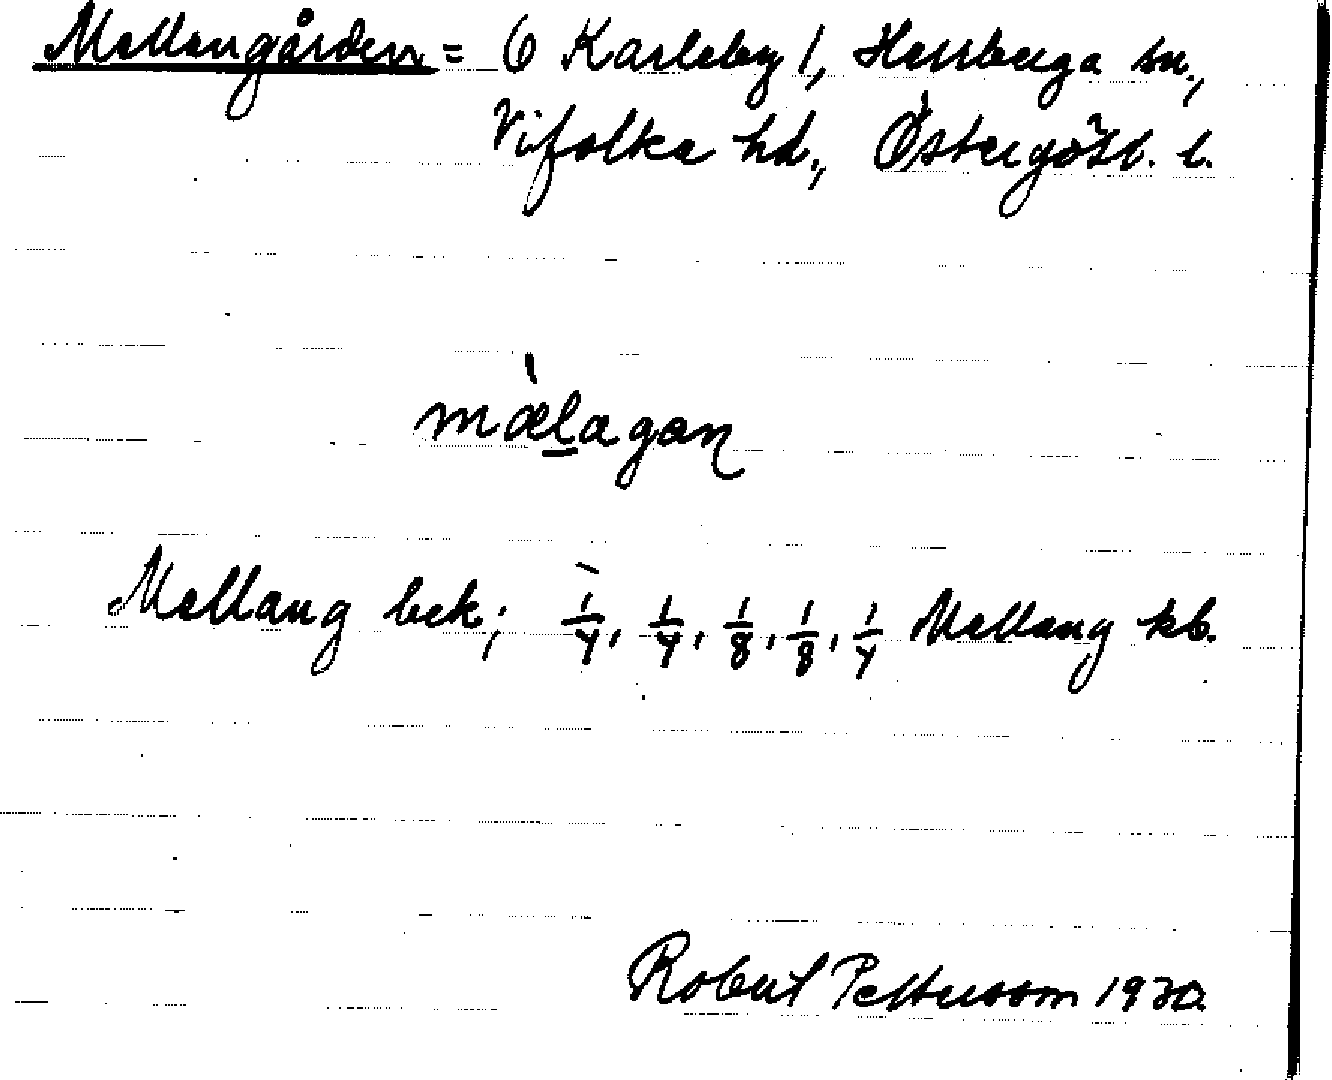 Mellangården = 6 Karleby 1, Herrberga sn.,
Vifolka hd., Östergötl. l.
mælagan
Mellang bek; 1/4, 1/4, 1/8, 1/8, 1/4 Mellang kb.
Robert Pettersson 1930